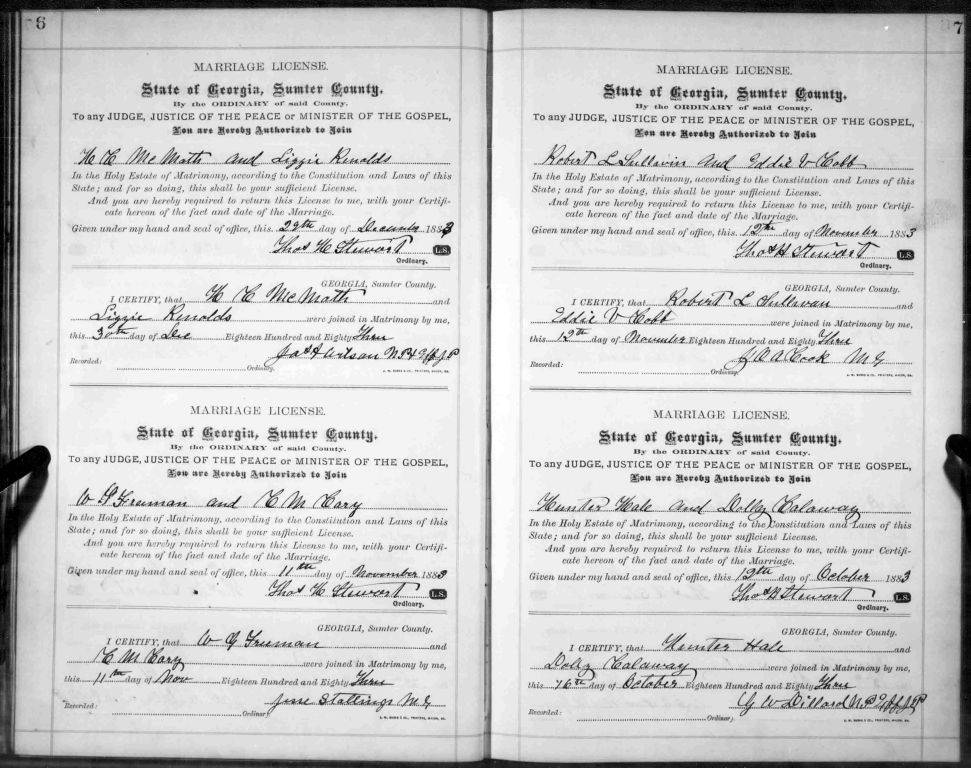 6
MARRIAGE LICENSE.
State of Georgia, Sumter County.
By the ORDINARY of said County.
To any JUDGE, JUSTICE OF THE PEACE or MINISTER OF THE GOSPEL,
You are Hereby Authorized to Join
H C McMath and Lizzie Renolds
In the Holy Estate of Matrimony, according to the Constitution and Laws of this
State; and for so doing, this shall be your sufficient License.
And you are hereby required to return this License to me, with your Certifi-
cate hereon of the fact and date of the Marriage.
Given under my hand and seal of office, this 29th day of December 1883
Thos H Stewart L.S.
Ordinary.
GEORGIA, Sumter County.
I CERTIFY, that H C McMath and
Lizzie Renolds were joined in Matrimony by me,
this 30th day of Dec Eighteen Hundred and Eighty Three
Jas A Wilson
Recorded: Ordinary.
MARRIAGE LICENSE.
State of Georgia, Sumter County.
By the ORDINARY of said County.
To any JUDGE, JUSTICE OF THE PEACE or MINISTER OF THE GOSPEL,
You are Hereby Authorized to Join
W G Freeman and C M Cary
In the Holy Estate of Matrimony, according to the Constitution and Laws of this
State; and for so doing, this shall be your sufficient License.
And you are hereby required to return this License to me, with your Certifi-
cate hereon of the fact and date of the Marriage.
Given under my hand and seal of office, this 11th day of November 1883
Thos H Stewart L.S.
Ordinary.
GEORGIA, Sumter County.
I CERTIFY, that W G Freeman and
C M Cary were joined in Matrimony by me,
this 11th day of Nov Eighteen Hundred and Eighty Three
Jesse Stallings M G
Recorded: Ordinary.
7
MARRIAGE LICENSE.
State of Georgia, Sumter County.
By the ORDINARY of said County.
To any JUDGE, JUSTICE OF THE PEACE or MINISTER OF THE GOSPEL,
You are Hereby Authorized to Join
Robert L Sullivin and Eddie V Cobb
In the Holy Estate of Matrimony, according to the Constitution and Laws of this
State; and for so doing, this shall be your sufficient License.
And you are hereby required to return this License to me, with your Certifi-
cate hereon of the fact and date of the Marriage.
Given under my hand and seal of office, this 12th day of November 1883
Thos H Stewart L.S.
Ordinary.
GEORGIA, Sumter County.
I CERTIFY, that Robert L Sullivan and
Eddie V Cobb were joined in Matrimony by me,
this 12th day of November Eighteen Hundred and Eighty Three
Cook M G
Recorded: Ordinary.
MARRIAGE LICENSE.
State of Georgia, Sumter County.
By the ORDINARY of said County.
To any JUDGE, JUSTICE OF THE PEACE or MINISTER OF THE GOSPEL,
You are Hereby Authorized to Join
Hunter Hale and Dolly Calaway
In the Holy Estate of Matrimony, according to the Constitution and Laws of this
State; and for so doing, this shall be your sufficient License.
And you are hereby required to return this License to me, with your Certifi-
cate hereon of the fact and date of the Marriage.
Given under my hand and seal of office, this 12th day of October 1883
Thos H Stewart L.S.
Ordinary.
GEORGIA, Sumter County.
I CERTIFY, that Hunter Hale and
Doly Calaway were joined in Matrimony by me,
this 16th day of October Eighteen Hundred and Eighty Three
G W Dillard
Recorded: Ordinary.